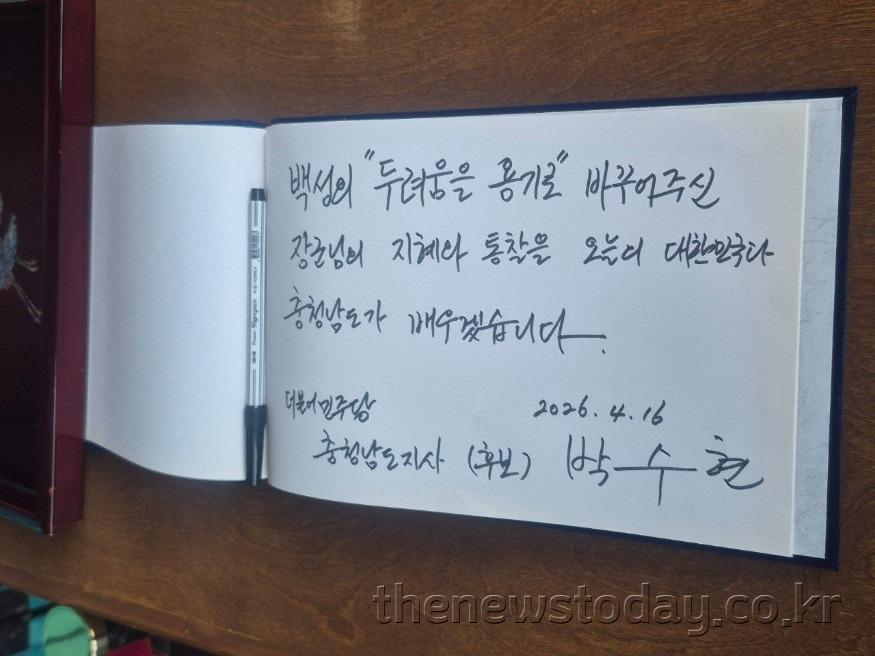 백성의 "두려움을 용기로" 바꾸어주신
장군님의 지혜와 통찰을 오늘의 대한민국과
충청남도가 배우겠습니다.
더불어민주당
2026. 4. 16
충청남도지사 (후보) 박수현
thenewstoday.co.kr